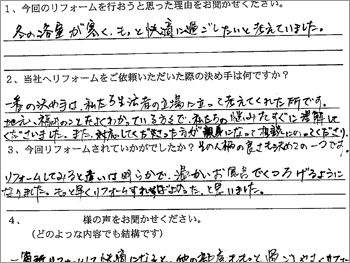 1、今回のリフォームを行おうと思った理由をお聞かせください。
冬の浴室が寒く、もっと快適に過ごしたいと考えていました。
2、当社へリフォームをご依頼いただいた際の決め手は何ですか?
一番の決め手は、私たち生活者の立場に立って考えてくれた所です。
地元、福岡のことをよくわかっている方々で、私たちの悩みもすぐに理解して
くださいました。また、対応してくださった方が親身になって相談にのってくださり、
3、今回リフォームされていかがでしたか? その人柄の良さも決めての一つです。
リフォームしてみると違いは明らかで、温かいお風呂でくつろげるように
なりました。もっと早くリフォームすればよかった、と思いました。
4、 様の声をお聞かせください。
(どのような内容でも結構です)